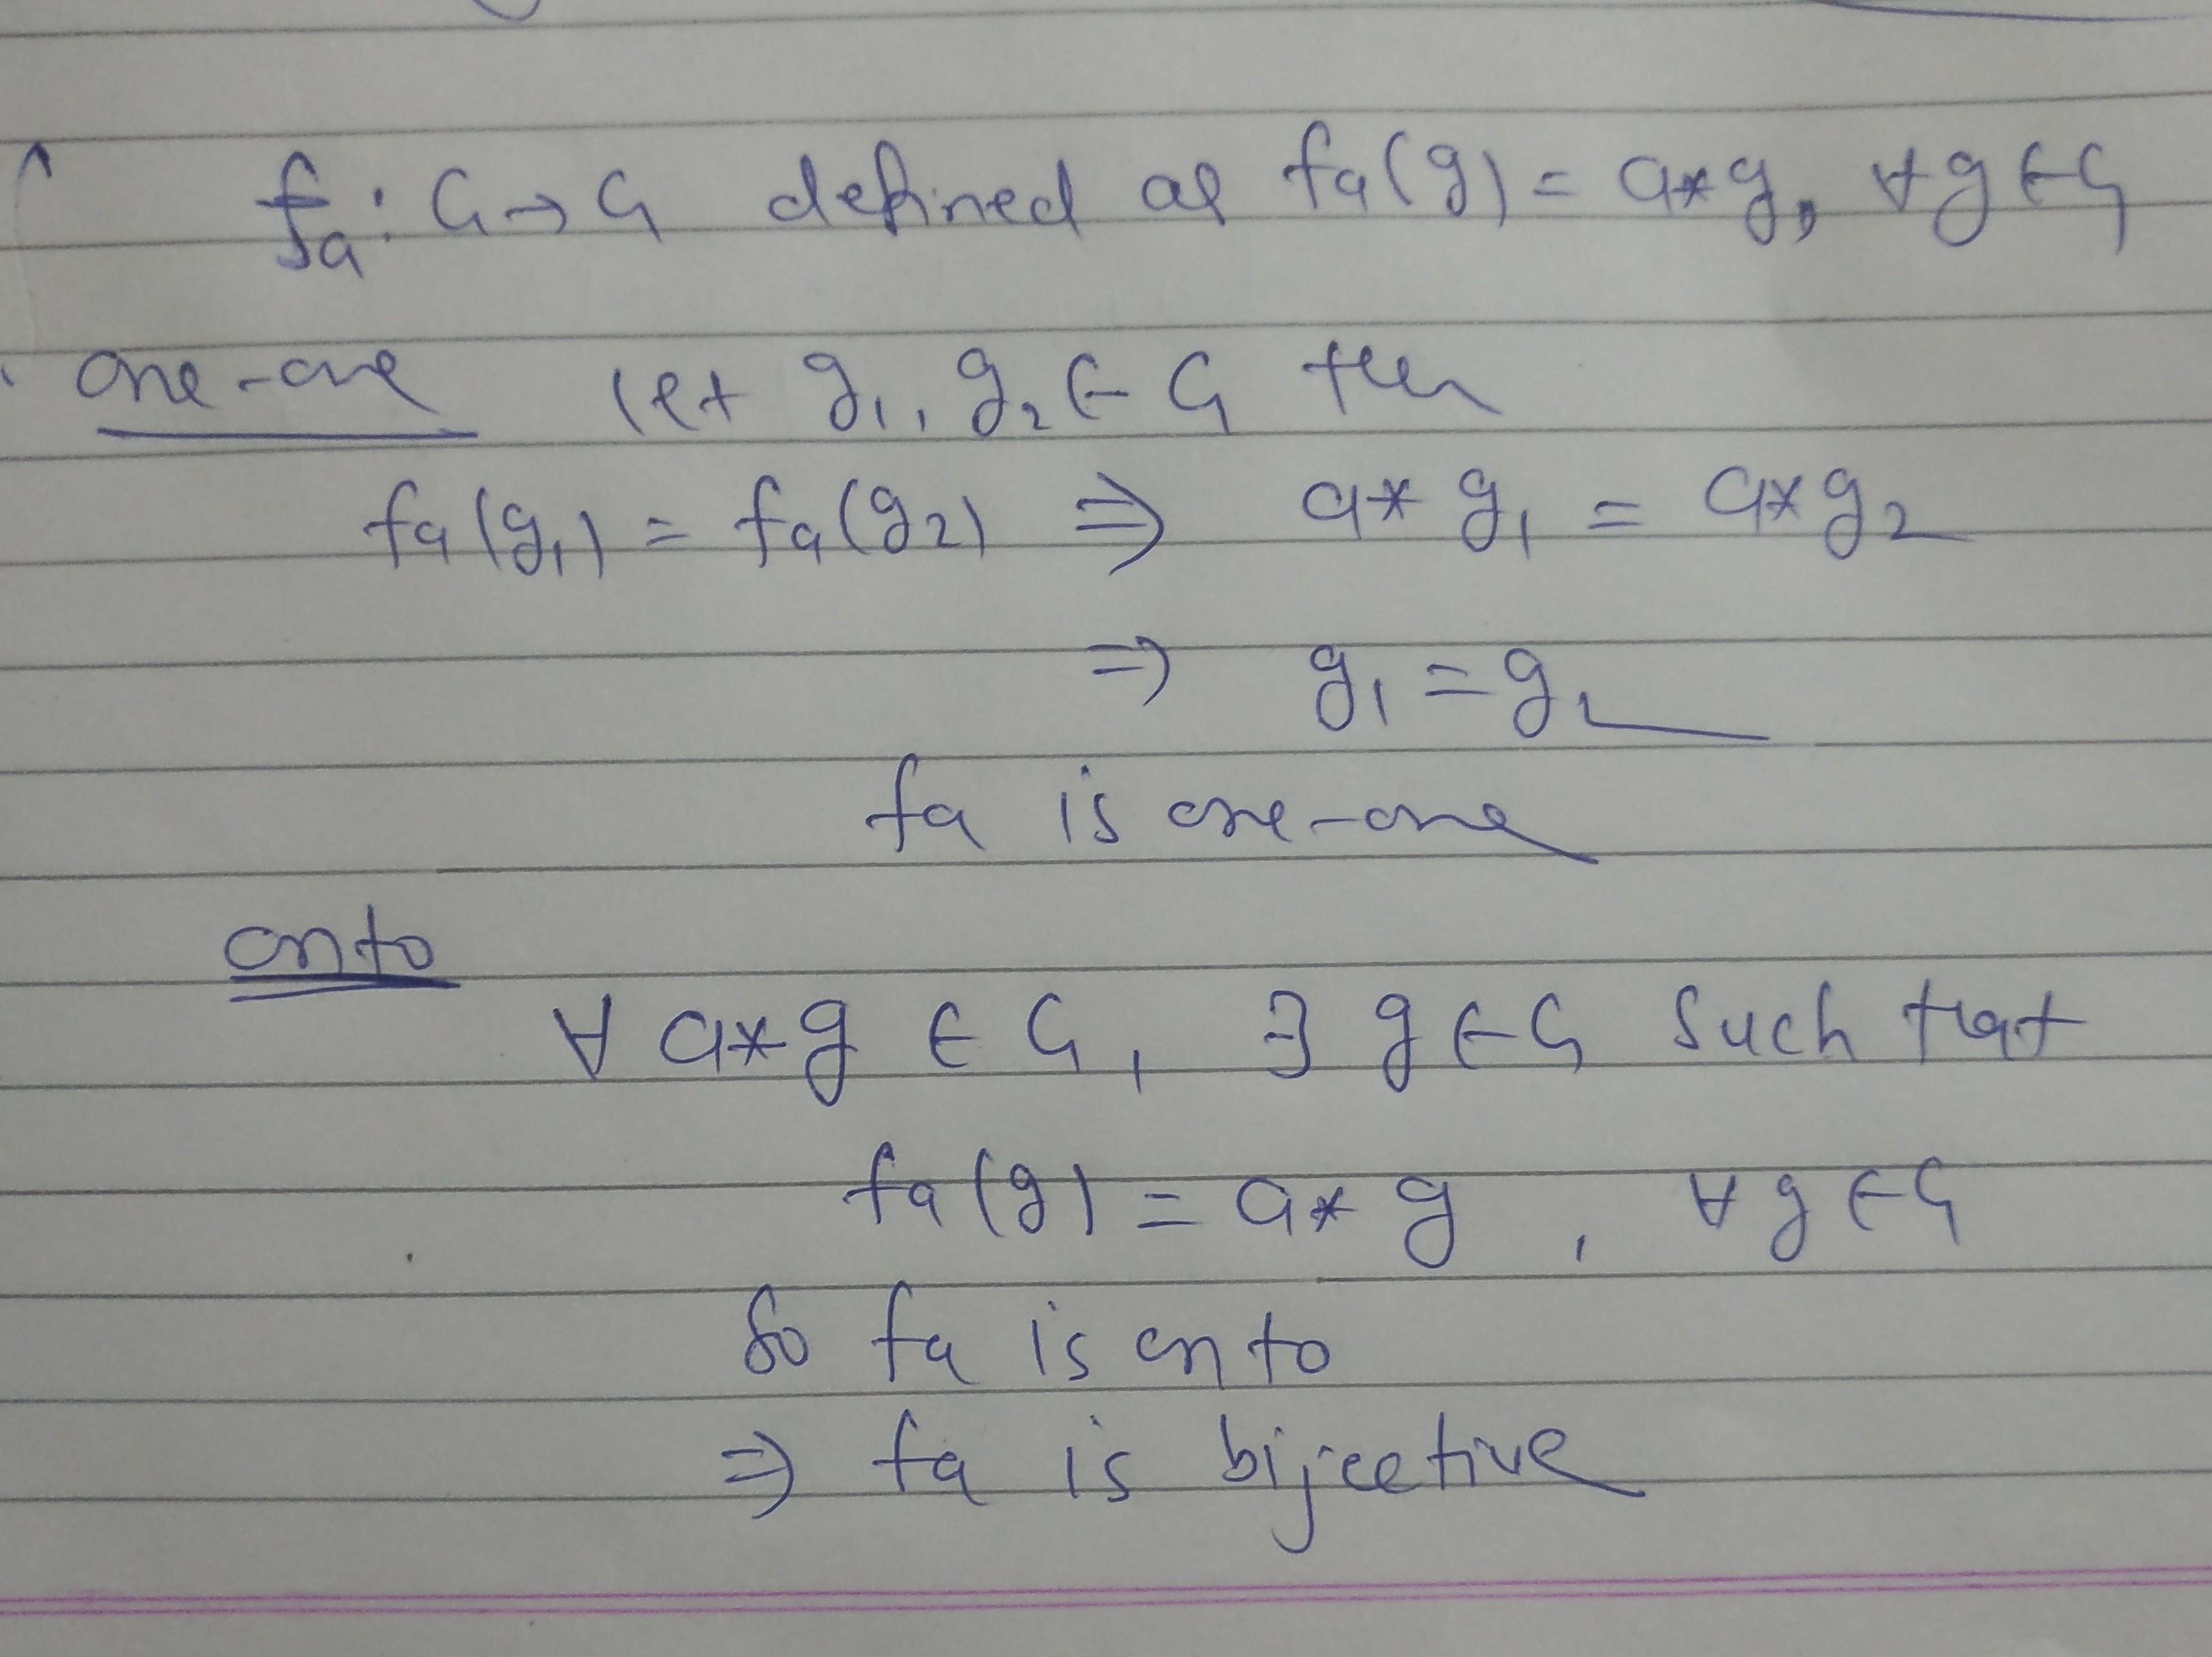 fₐ : G → G defined as fₐ(g) = a*g, ∀ g ∈ G
one-one let g₁, g₂ ∈ G then
fₐ(g₁) = fₐ(g₂) ⇒ a* g₁ = a*g₂
⇒ g₁ = g₂
fₐ is one-one
onto
∀ a*g ∈ G, ∃ g ∈ G such that
fₐ(g) = a* g , ∀ g ∈ G
So fₐ is onto
⇒ fₐ is bijective